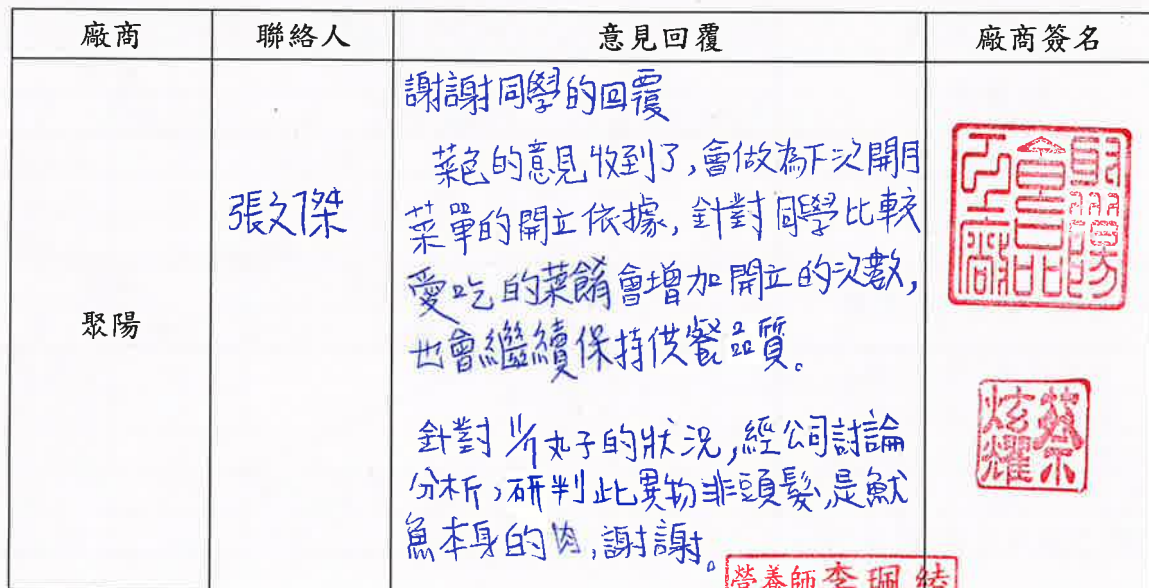 廠商 聯絡人 意見回覆 廠商簽名
聚陽
張文傑
謝謝同學的回覆
菜色的意見收到了,會做為下次開月
菜單的開立依據,針對同學比較
愛吃的菜餚會增加開立的次數,
也會繼續保持供餐品質。
針對 11/1 丸子的狀況,經公司討論
分析,研判此異物非頭髮,是魷
魚本身的肉,謝謝。
聚陽食品工廠
蔡炫耀
營養師李珮